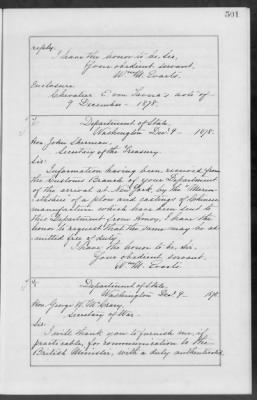 501
reply.
I have the honor to be, Sir,
Your obedient servant,
Wm M. Evarts.
Enclosure
Chevalier E. von note of
9 December - 1878.
Department of State,
Washington Decr 9 - 1878.
Hon. John Sherman,
Secretary of the Treasury.
Sir:
Information having been received from
the Customs Branch of your Department
of the arrival at New York, by the
of a plow and castings of Chinese
manufacture which have been sent to
this Department from Amoy, I have the
honor to request that the same may be ad-
mitted free of duty.
I have the honor to be, Sir,
Your obedient servant,
Wm M. Evarts.
Department of State,
Washington Decr 9 - 1878
Hon. George W. McCrary,
Secretary of War.
Sir:
I will thank you to furnish me, if
practicable, for communication to the
British Minister, with a duly authenticated